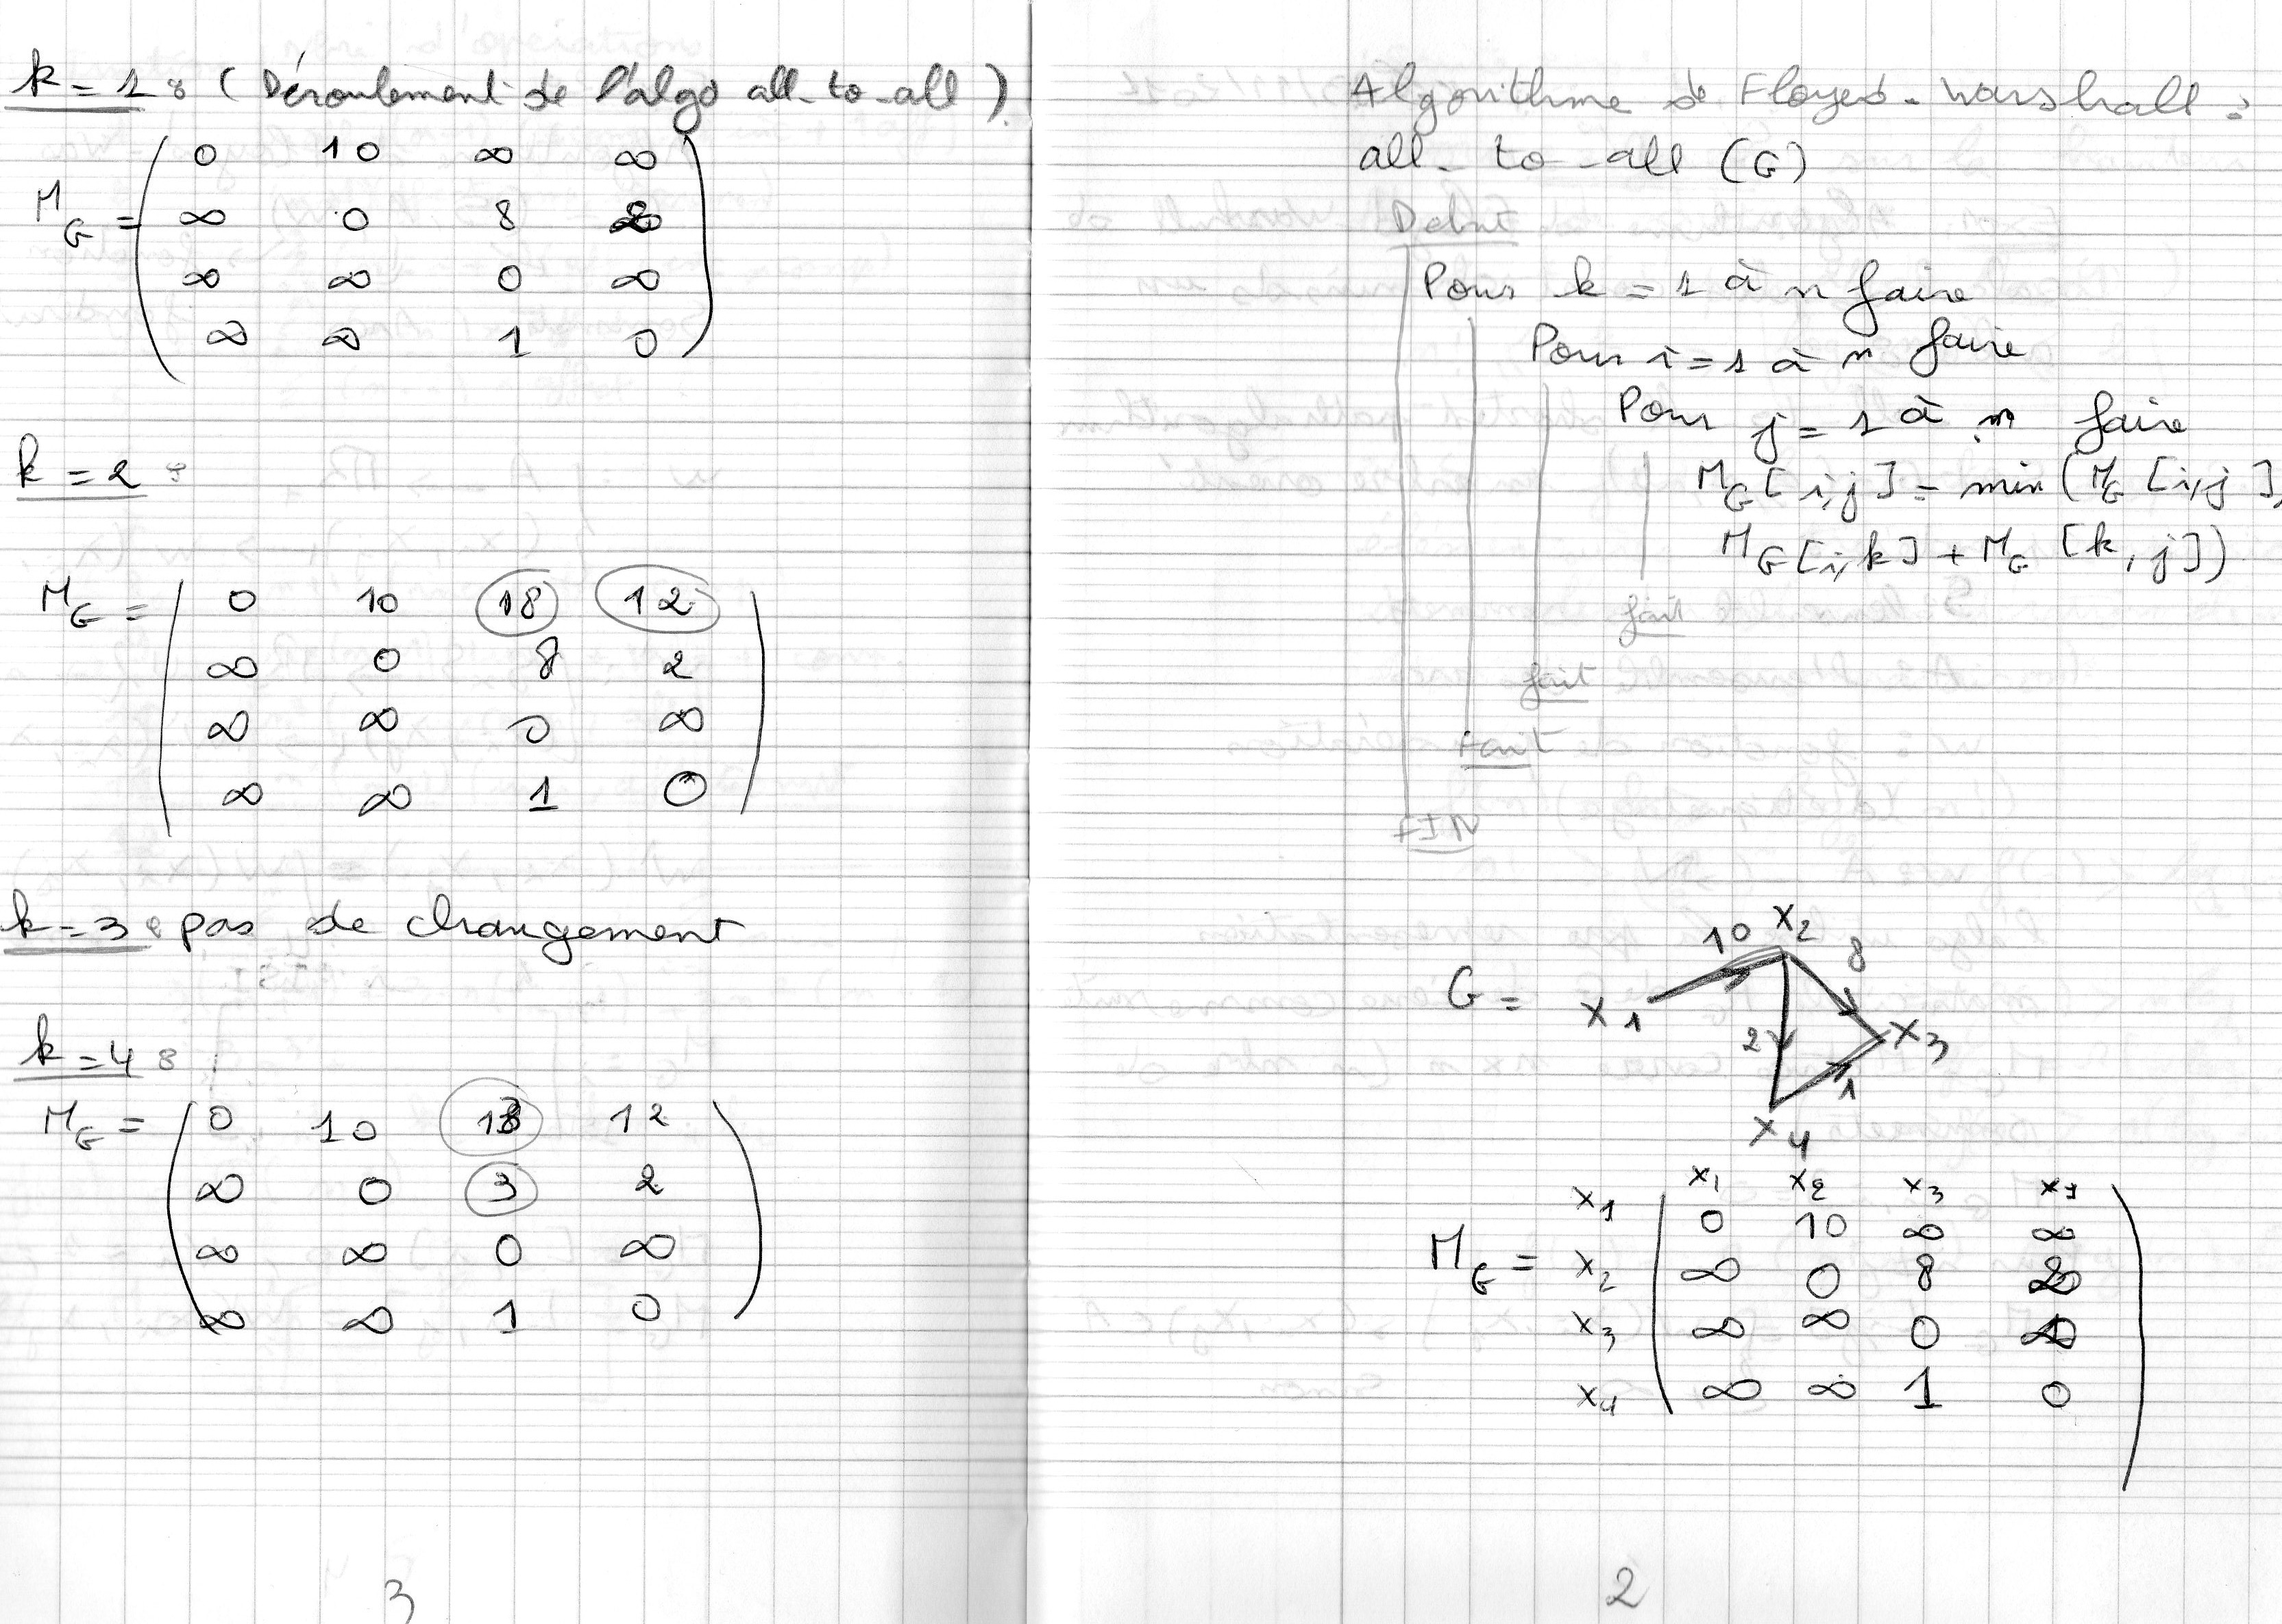 k = 1 : (Déroulement de l'algo all-to-all)
M_G =
0 10 ∞ ∞
∞ 0 8 2
∞ ∞ 0 ∞
∞ ∞ 1 0
k = 2 :
M_G =
0 10 18 12
∞ 0 8 2
∞ ∞ 0 ∞
∞ ∞ 1 0
k = 3 : pas de changement
k = 4 :
M_G =
0 10 13 12
∞ 0 3 2
∞ ∞ 0 ∞
∞ ∞ 1 0
3
Algorithme de Floyed-Warshall :
all-to-all (G)
Debut
Pour k = 1 à n faire
Pour i = 1 à n faire
Pour j = 1 à n faire
M_G[i,j] = min (M_G[i,j],
M_G[i,k] + M_G[k,j])
fait
fait
fait
FIN
G =
10 x2 8
x1
2 x3
1
x4
x1 x2 x3
M_G =
x1 0 10 ∞ ∞
x2 ∞ 0 8 2
x3 ∞ ∞ 0
x4 ∞ ∞ 1 0
2